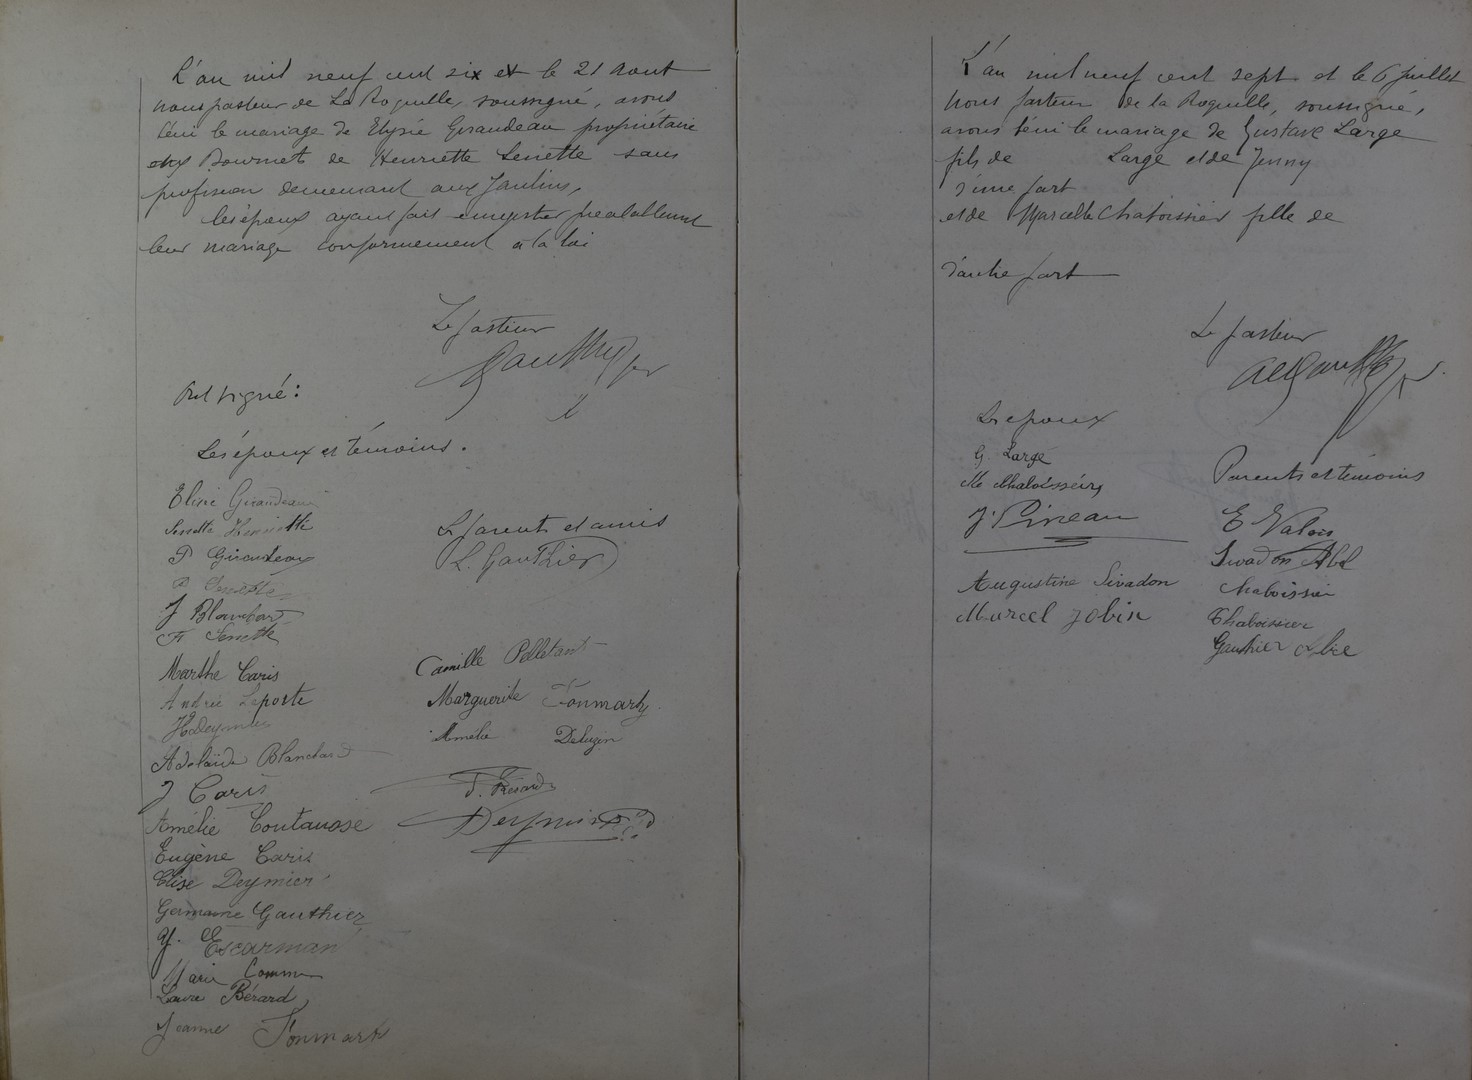 L'an mil neuf cent six et le 21 Aout
nous pasteur de La Roquille, soussigné, avons
béni le mariage de Elysée Giraudeau propriétaire
aux Bournets de Henriette Senette sans
profession demeurant aux Jaulins,
les époux ayant fait enregistrer préalablement
leur mariage conformement à la loi
Le pasteur
Gauthier
Ont signé:
Les époux et témoins.
Elisée Giraudeau
Senette Henriette
P Giraudeau
P Senette
J Blanchard
F Senette
Marthe Caris
Andrée Laporte
H Deymier
Adelaïde Blanchard
J Caris
Amélie Coutausse
Eugène Caris
Elise Deymier
Germaine Gauthier
Y. Escarmant
Marie
Laure Bérard
Jeanne Fonmarty
Les parents et amis
L. Gauthier
Camille Pelletant
Marguerite Fonmarty
Amélie Delugin
Deymier
L'an mil neuf cent sept et le 6 juillet
Nous pasteur de la Roquille, soussigné,
avons béni le mariage de Gustave Large
fils de Large et de Jenny
d'une part
et de Marcelle Chaboissier fille de
d'autre part
Le pasteur
Gauthier
Les époux
G. Large
M Chaboissier
J. Pineau
Augustine Sivadon
Marcel Jobin
Parents et témoins
E Valois
Sivadon Abel
Chaboissier
Chaboissier
Gauthier